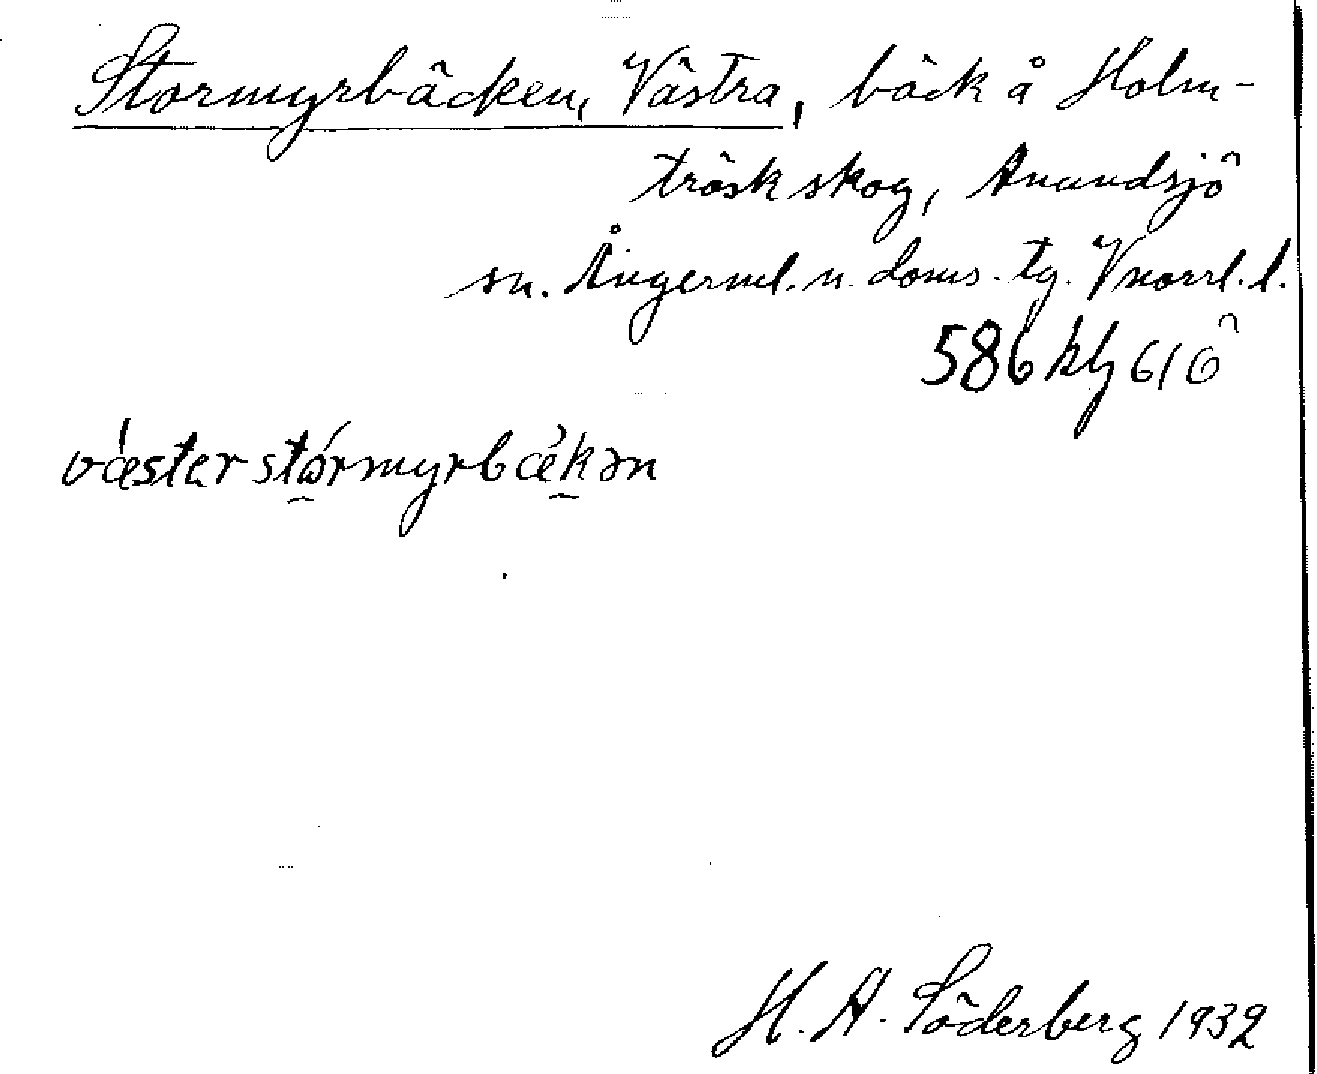 Stormyrbäcken, Västra, bäck å Holm-
träsk skog, Anundsjö
sn. Ångerml. n. doms. tg. Vnorrl. l.
586 klj 616
væster stórmyrbækən
H. A. Söderberg 1932